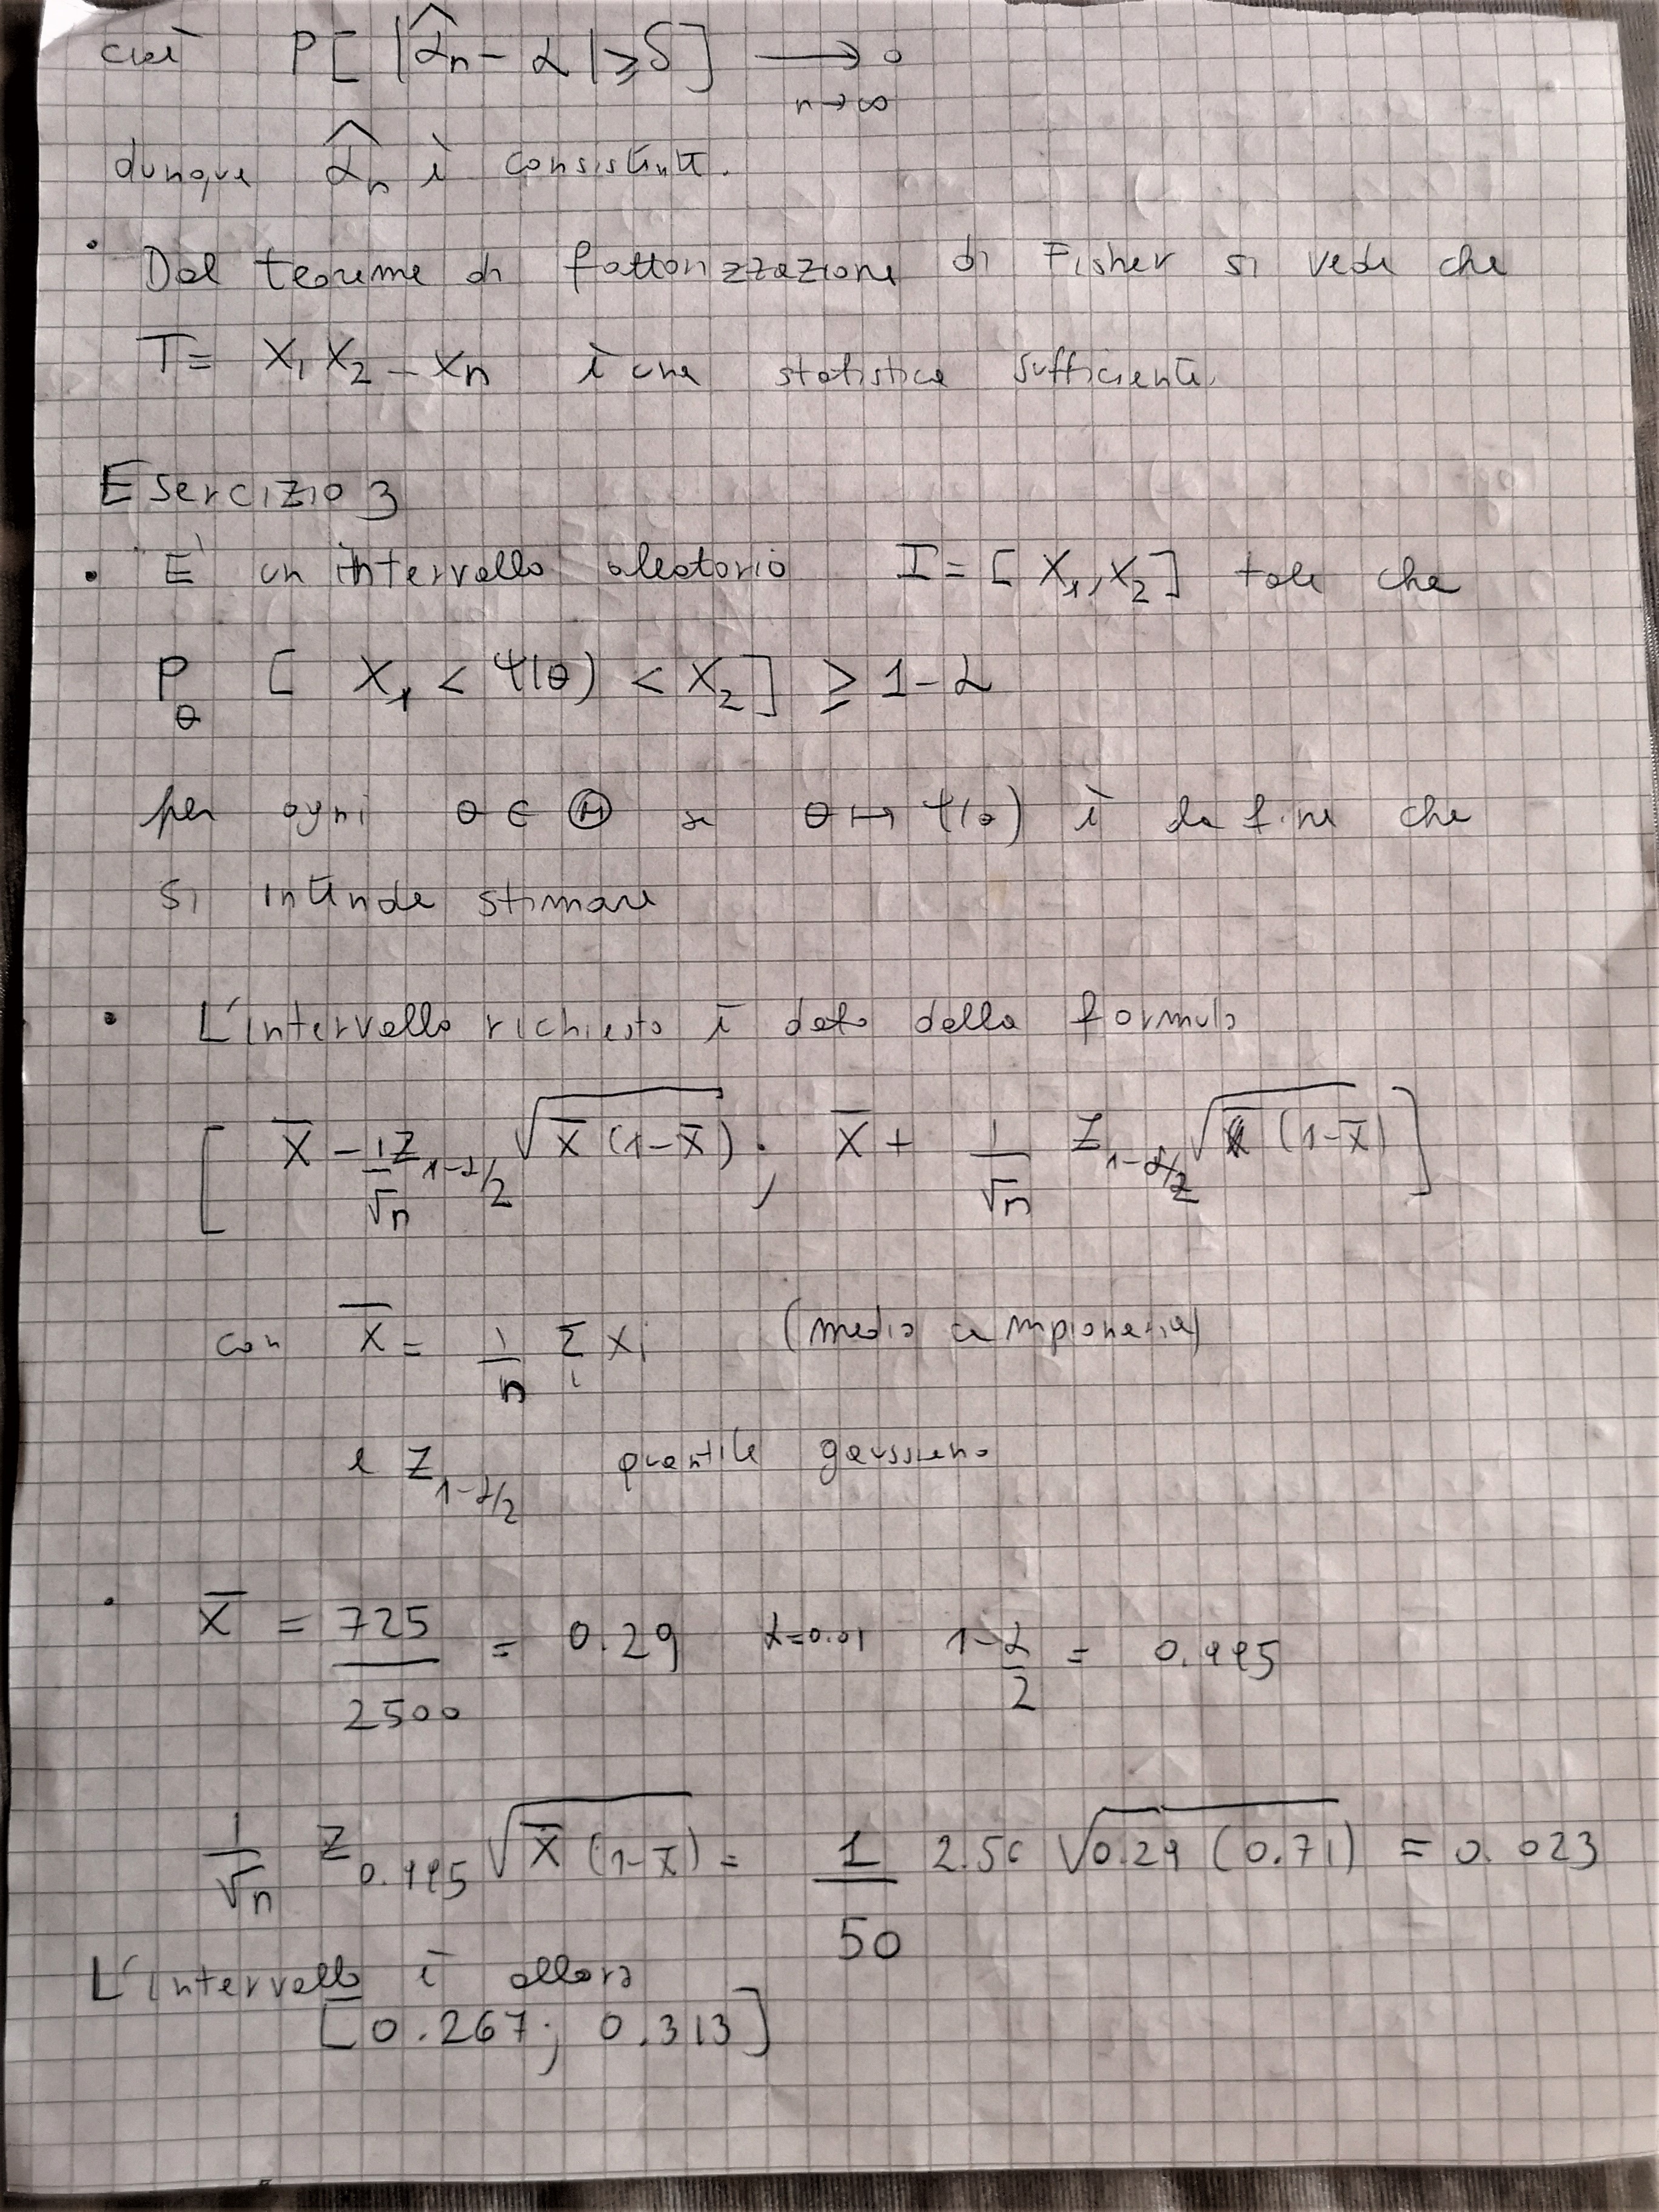 cioè P[ |α̂n - α| ≥ δ ] ⟶ 0
n→∞
dunque α̂n è consistente.
• Dal teorema di fattorizzazione di Fisher si vede che
T= X1 X2 - Xn è una statistica sufficiente.
Esercizio 3
• E' un intervallo aleatorio I = [ X1, X2 ] tale che
Pθ [ X1 < Ψ(θ) < X2 ] ≥ 1-α
per ogni θ ∈ Θ se θ ↦ Ψ(θ) è la f.ne che
si intende stimare
• L'intervallo richiesto è dato dalla formula
[ X̄ - 1/√n Z1-α/2 √X̄(1-X̄) ; X̄ + 1/√n Z1-α/2 √X̄(1-X̄) ]
con X̄ = 1/n Σi Xi (media campionaria)
e Z1-α/2 quantile gaussiano
• X̄ = 725/2500 = 0.29 α=0.01 1-α/2 = 0.995
1/√n Z0.995 √X̄(1-X̄) = 1/50 2.5 √0.29 (0.71) = 0.023
L'intervallo è allora
[0.267; 0.313]